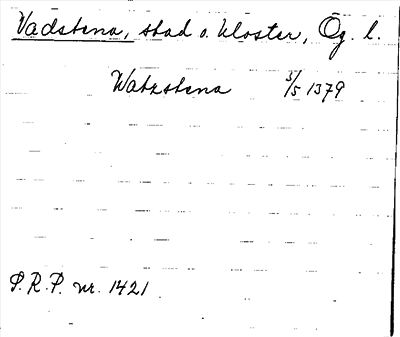 Vadstena, stad o. kloster, Ög. l.
Watzstena 3/5 1379
S.R.P. nr. 1421